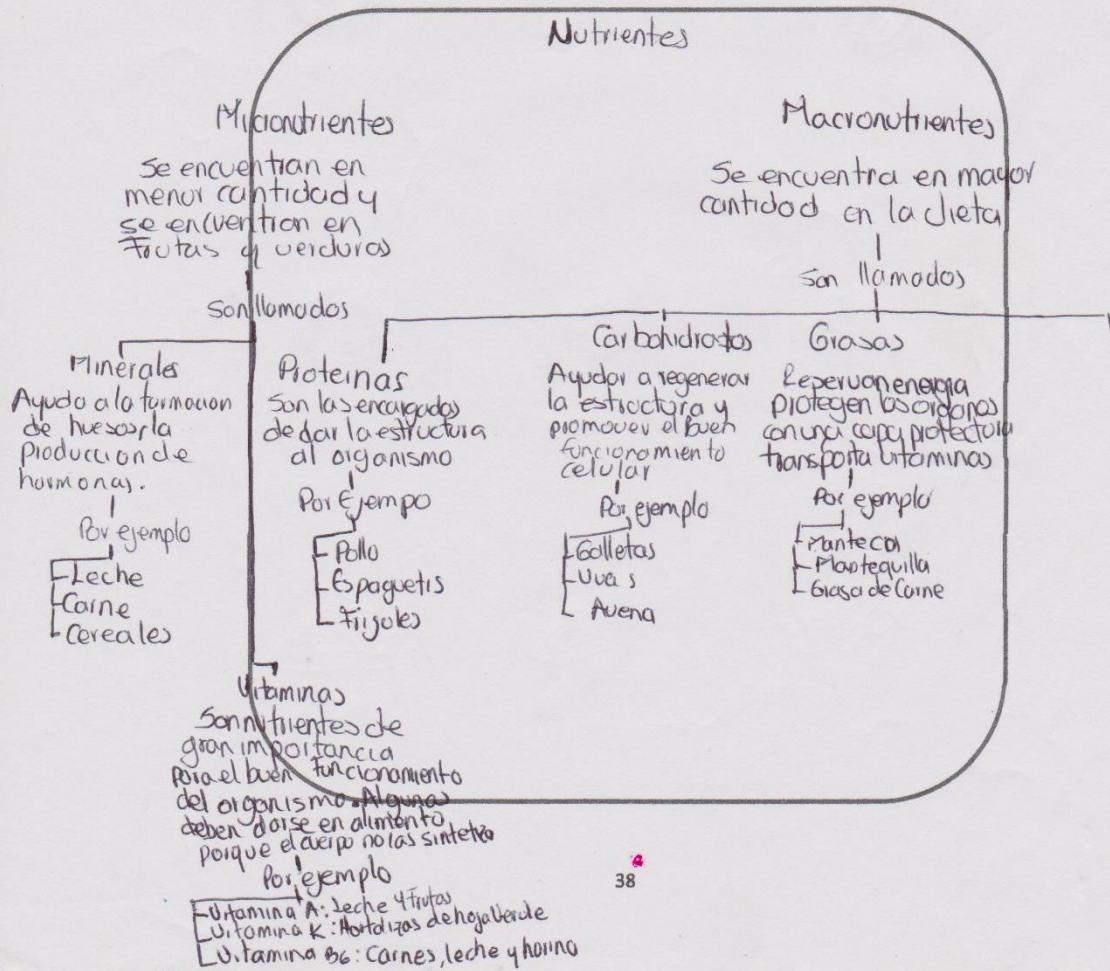 Nutrientes
Micronutrientes
Se encuentran en
menor cantidad y
se encuentran en
Frutas y verduras
Son llamados
Minerales
Ayuda a la formacion
de huesos, la
Produccion de
hormonas.
Por ejemplo
Leche
Carne
Cereales
Vitaminas
Son nutrientes de
gran importancia
para el buen funcionamiento
del organismo. Algunas
deben darse en alimento
porque el cuerpo no las
Por ejemplo
Vitamina A: Leche y Frutas
Vitamina K: Hortalizas de hoja Verde
Vitamina B6: Carnes, leche y harina
Macronutrientes
Se encuentra en mayor
cantidad en la dieta
Son llamados
Proteinas
Son las encargadas
de dar la estructura
al organismo
Por Ejempo
Pollo
Espaguetis
Frijoles
Carbohidratos
Ayudar a regenerar
la estructura y
promover el buen
funcionamiento
celular
Por ejemplo
Galletas
Uvas
Avena
Grasas
energia
Protegen los organos
con una capa protectora
transporta vitaminas
Por ejemplo
Manteca
Mantequilla
Grasa de Carne
38